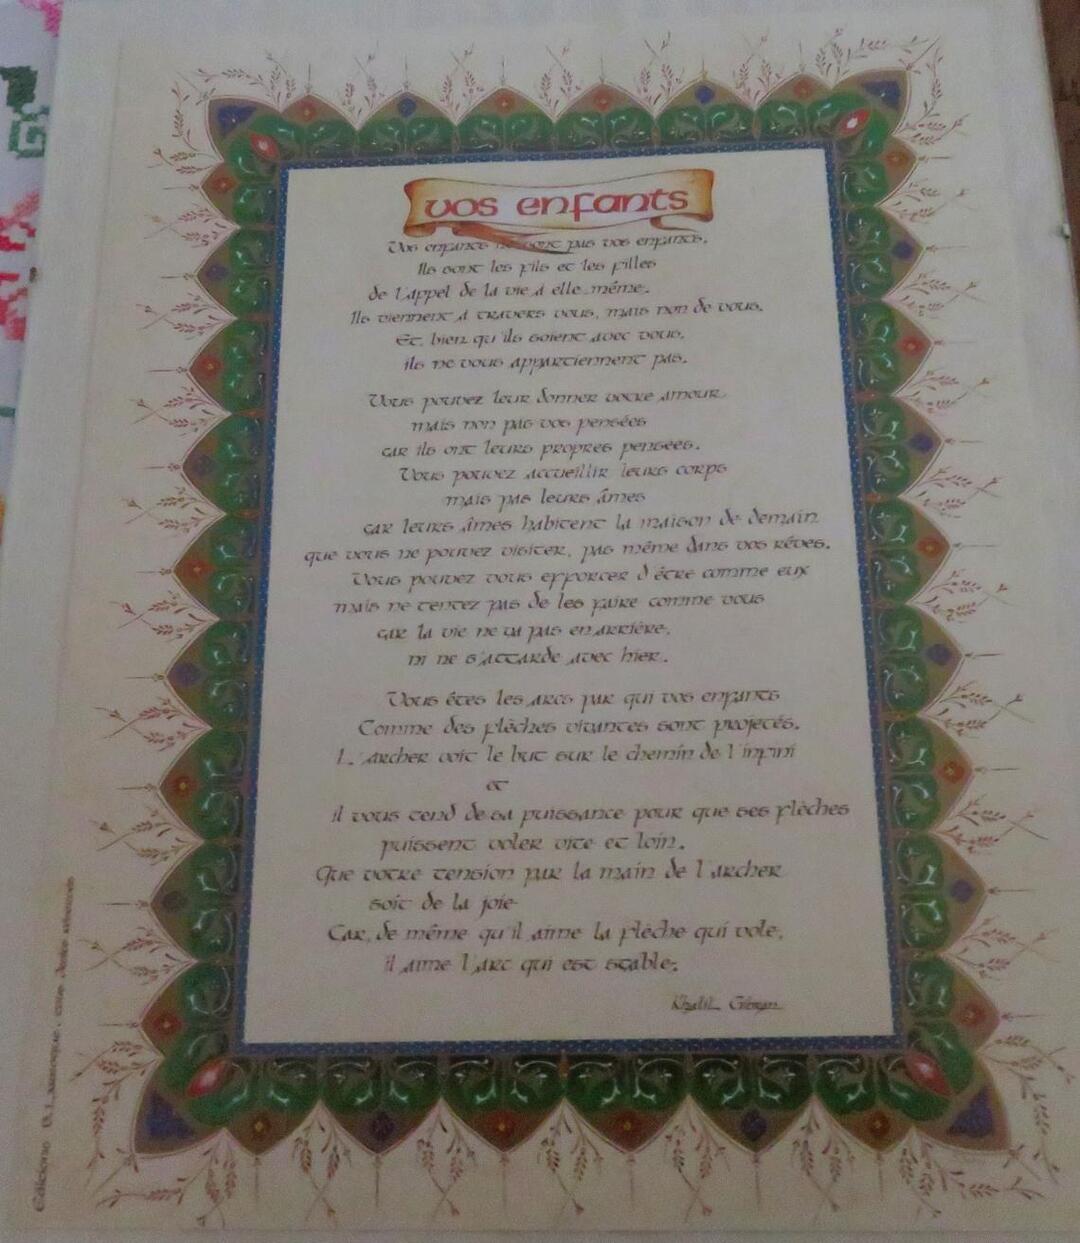 vos enfants
Vos enfants ne sont pas vos enfants.
Ils sont les fils et les filles
de l'appel de la vie à elle même.
Ils viennent à travers vous, mais non de vous.
Et, bien qu'ils soient avec vous,
ils ne vous appartiennent pas.
Vous pouvez leur donner votre amour
mais non pas vos pensées
car ils ont leurs propres pensées.
Vous pouvez accueillir leurs corps
mais pas leurs âmes
car leurs âmes habitent la maison de demain
que vous ne pouvez visiter, pas même dans vos rêves.
Vous pouvez vous efforcer d'être comme eux
mais ne tentez pas de les faire comme vous
car la vie ne va pas en arrière,
ni ne s'attarde avec hier.
Vous êtes les arcs par qui vos enfants
Comme des flèches vivantes sont projetés.
L'archer voit le but sur le chemin de l'infini
et
il vous tend de sa puissance pour que ses flèches
puissent voler vite et loin.
Que votre tension par la main de l'archer
soit de la joie
Car, de même qu'il aime la flèche qui vole,
il aime l'arc qui est stable.
Khalil Gibran